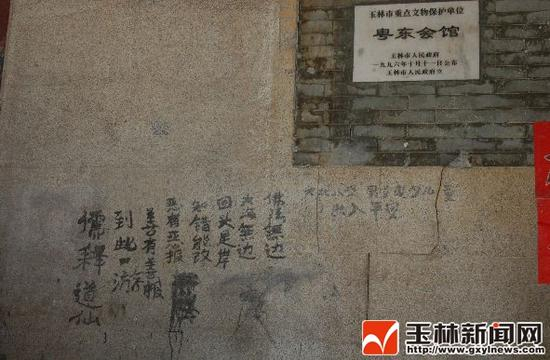 玉林市重点文物保护单位
粤东会馆
玉林市人民政府
一九九六年十月十一日公布
玉林市人民政府立
佛法無边
大海無边
回头是岸
知错能改
恶有恶报
善有善报
到此口游
儒释道仙
出入平安
玉林新闻网
http://www.gxylnews.com